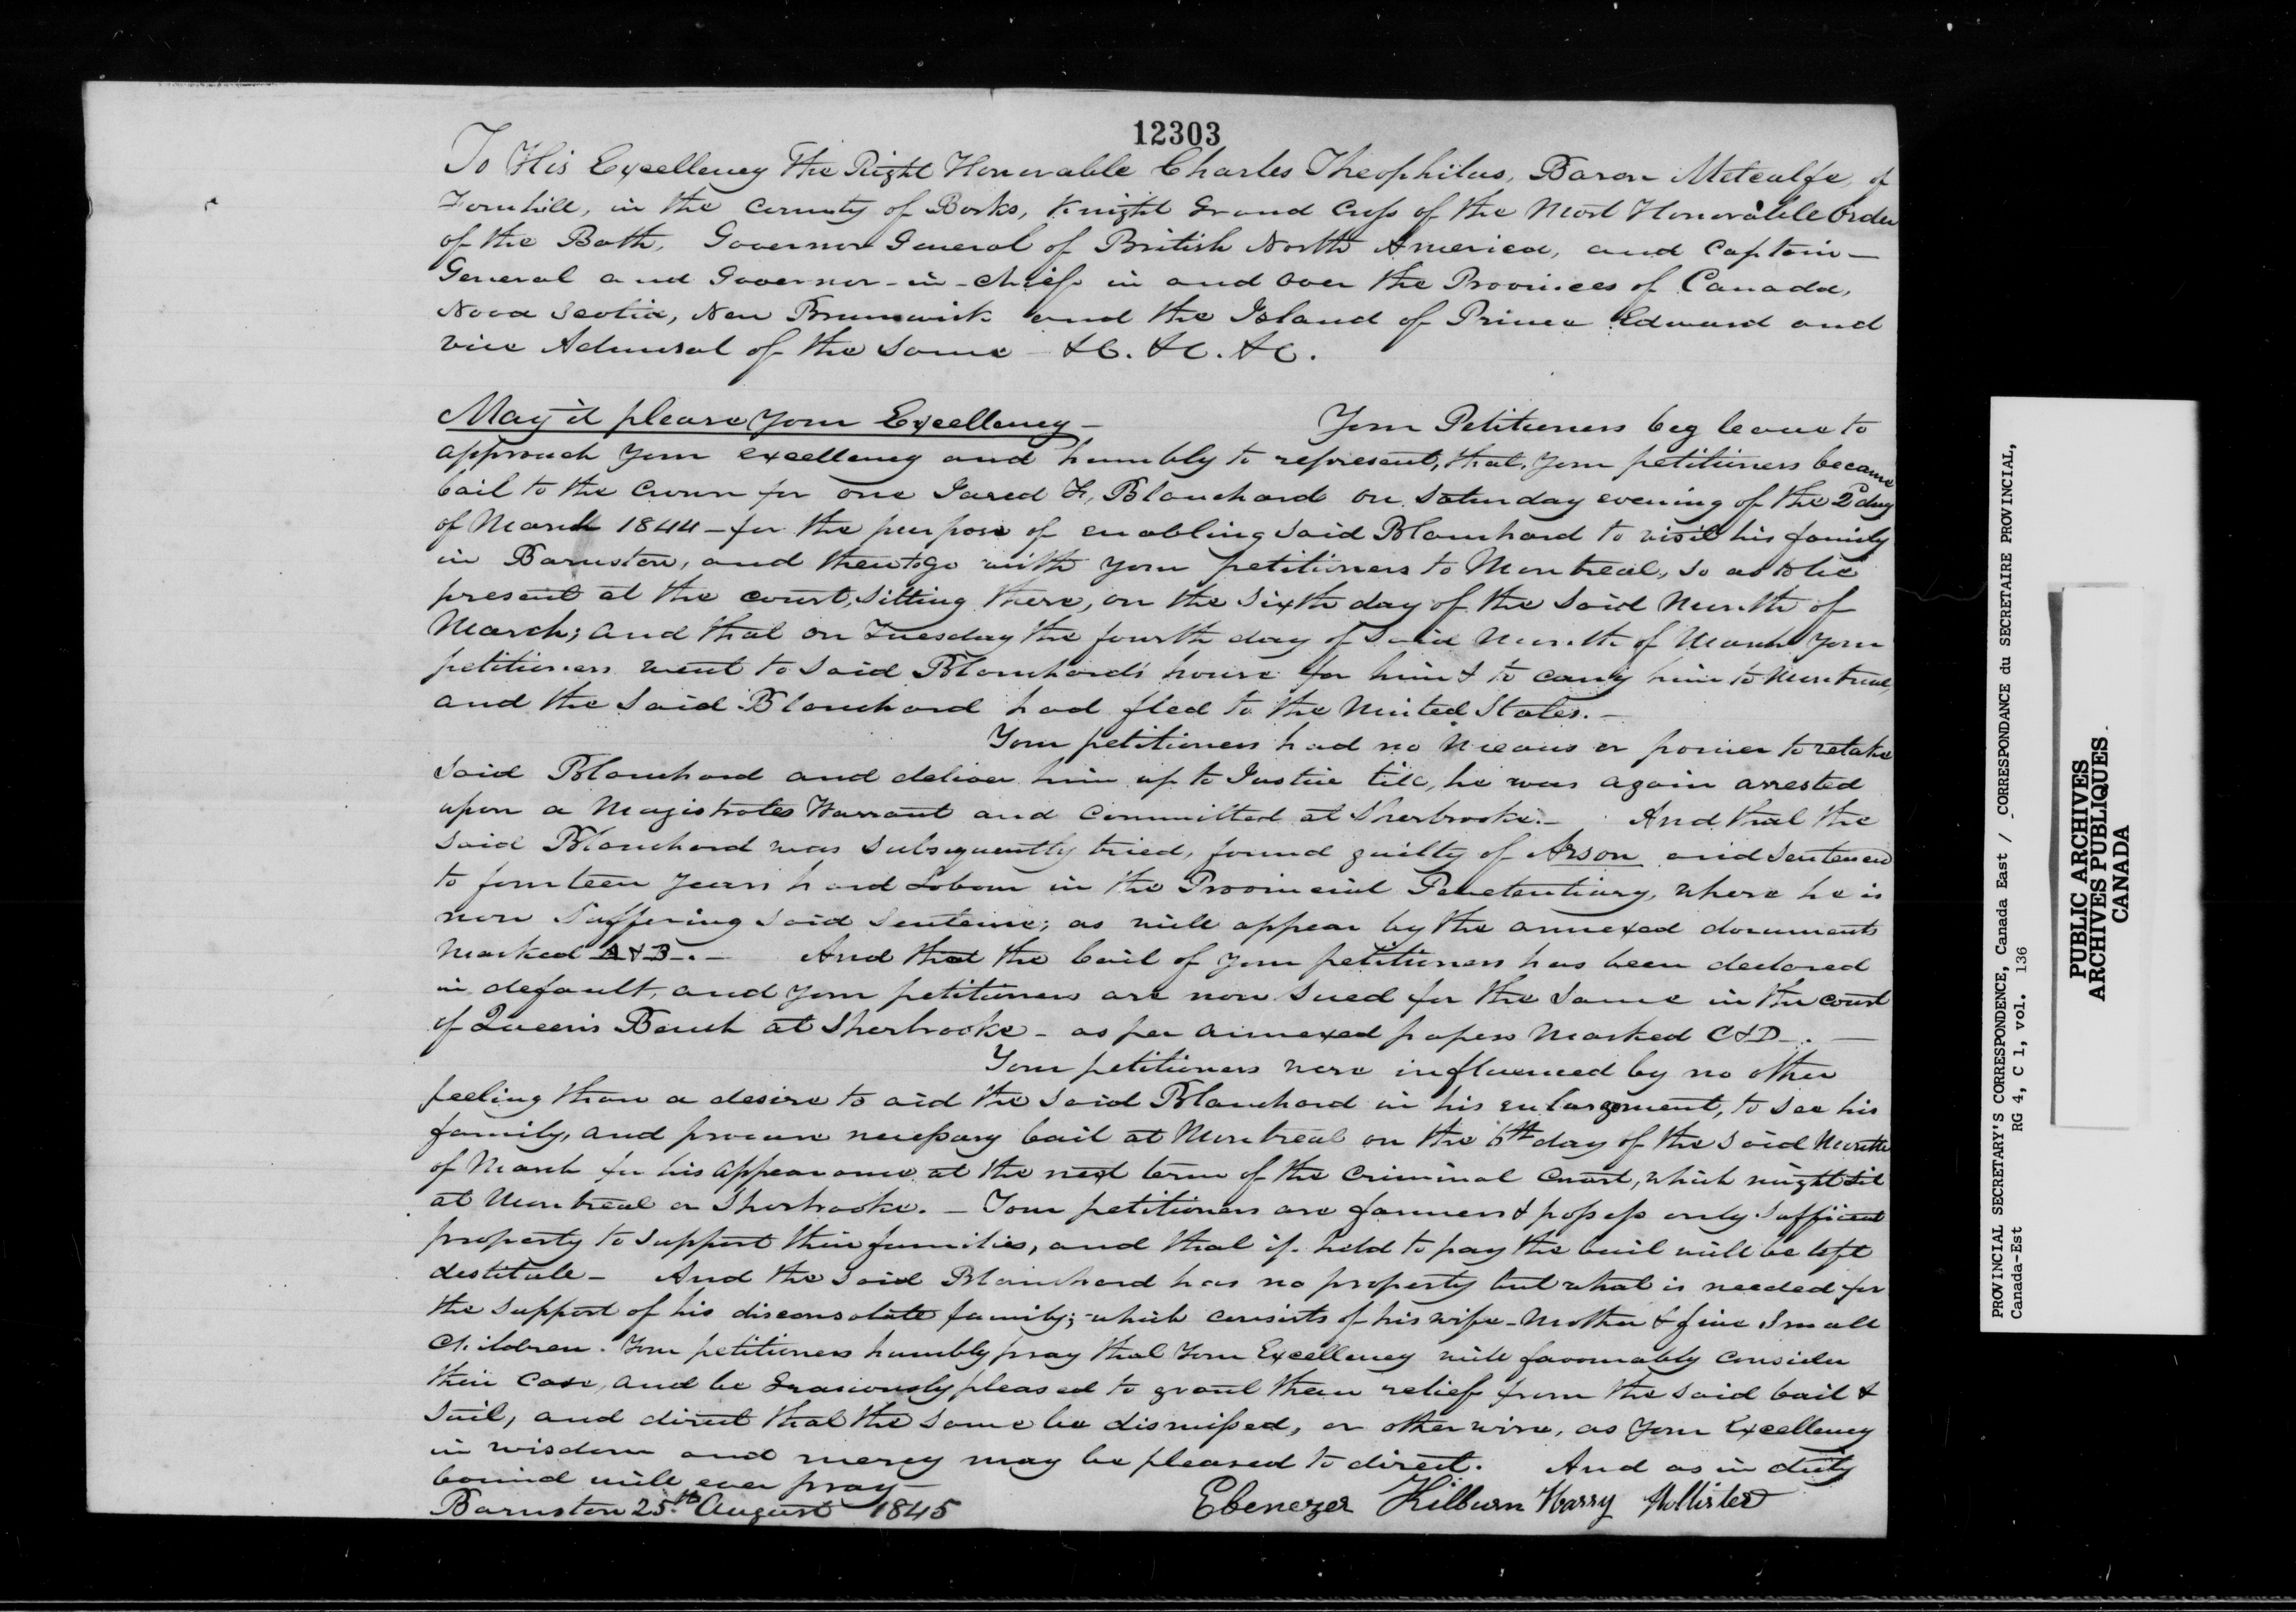 12303
To His Excellency The Right Honorable Charles Theophilus, Baron Metcalfe, of
Fernhill, in the County of Berks, Knight Grand Cross of the Most Honorable Order
of the Bath, Governor General of British North America, and Captain-
General and Governor-in-chief in and over the Provinces of Canada,
Nova Scotia, New Brunswick and the Island of Prince Edward and
vice Admiral of the same &C. &C. &C.
May it please your Excellency –
Your Petitioners beg leave to
approach your excellency and humbly to represent, that, your petitioners became
bail to the Crown for one Jared F. Blanchard on Saturday evening of the 2d day
of March 1844 – for the purpose of enabling said Blanchard to visit his family
in Barnston, and then to go with your petitioners to Montreal, so as to be
present at the court, sitting there, on the sixth day of the said month of
March; and that on Tuesday the fourth day of said month of March your
petitioners went to said Blanchard's house for him & to carry him to Montreal,
and the said Blanchard had fled to the United States. –
Your petitioners had no means or power to retake
said Blanchard and deliver him up to Justice till, he was again arrested
upon a Magistrates Warrant and Committed at Sherbrooke. – And that the
said Blanchard was subsequently tried, found guilty of Arson and sentenced
to fourteen years hard Labour in the Provincial Penetentiary, where he is
now suffering said sentence; as will appear by the annexed documents
marked A & B. – And that the bail of your petitioners has been declared
in default, and your petitioners are now sued for the same in the court
of Queen's Bench at Sherbrooke – as per annexed papers marked C & D –. –
Your petitioners were influenced by no other
feeling than a desire to aid the said Blanchard in his enlargement, to see his
family, and procure necessary bail at Montreal on the 6th day of the said Month
of March for his appearance at the next term of the Criminal Court, which might sit
at Montreal or Sherbrooke. – Your petitioners are farmers & possess only sufficient
property to support their families, and that if held to pay the bail will be left
destitute – And the said Blanchard has no property but what is needed for
the support of his disconsolate family; which consists of his wife – Mother & five small
Children. Your petitioners humbly pray that Your Excellency will favourably consider
their Case, and be Grasiously pleased to grant them relief from the said bail &
suit, and direct that the same be dismissed, or otherwise, as Your Excellency
in wisdom and mercy may be pleased to direct. And as in duty
bound will ever pray –
Barnston 25th August 1845
Ebenezer Kilburn Harry Hollister
PROVINCIAL SECRETARY'S CORRESPONDENCE, Canada East / CORRESPONDANCE du SECRETAIRE PROVINCIAL,
Canada-Est RG 4, C 1, vol. 136
PUBLIC ARCHIVES
ARCHIVES PUBLIQUES
CANADA